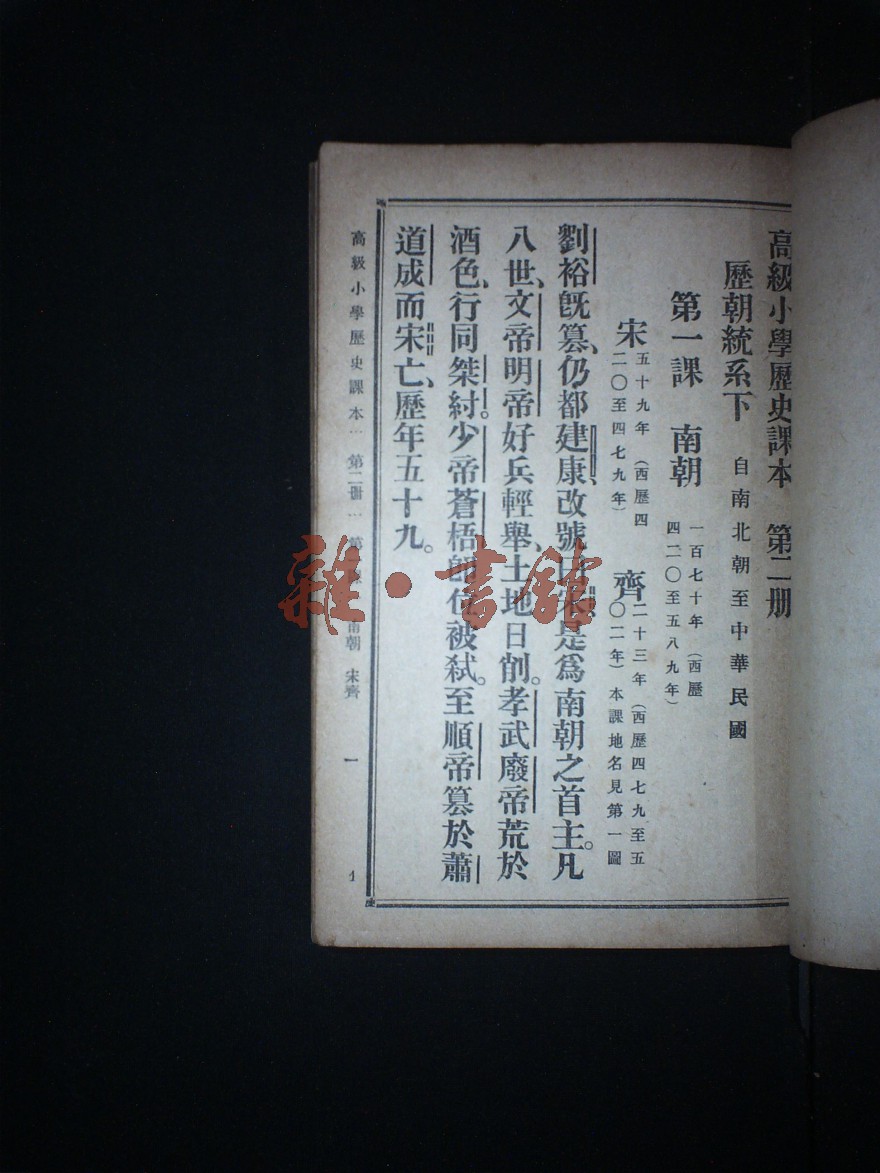 高級小學歷史課本 第二册
歷朝統系下 自南北朝至中華民國
第一課 南朝 一百七十年(西歷
四二〇至五八九年)
宋 五十九年(西歷四
二〇至四七九年)
齊 二十三年(西歷四七九至五
〇二年)本課地名見第一圖
劉裕旣篡、仍都建康、改號曰宋、是爲南朝之首主。凡
八世、文帝明帝好兵輕舉、土地日削。孝武廢帝荒於
酒色、行同桀紂。少帝蒼梧卽位被弑。至順帝篡於蕭
道成而宋亡、歷年五十九。
高級小學歷史課本 第二冊 第一課 南朝 宋齊 一
雜·書館